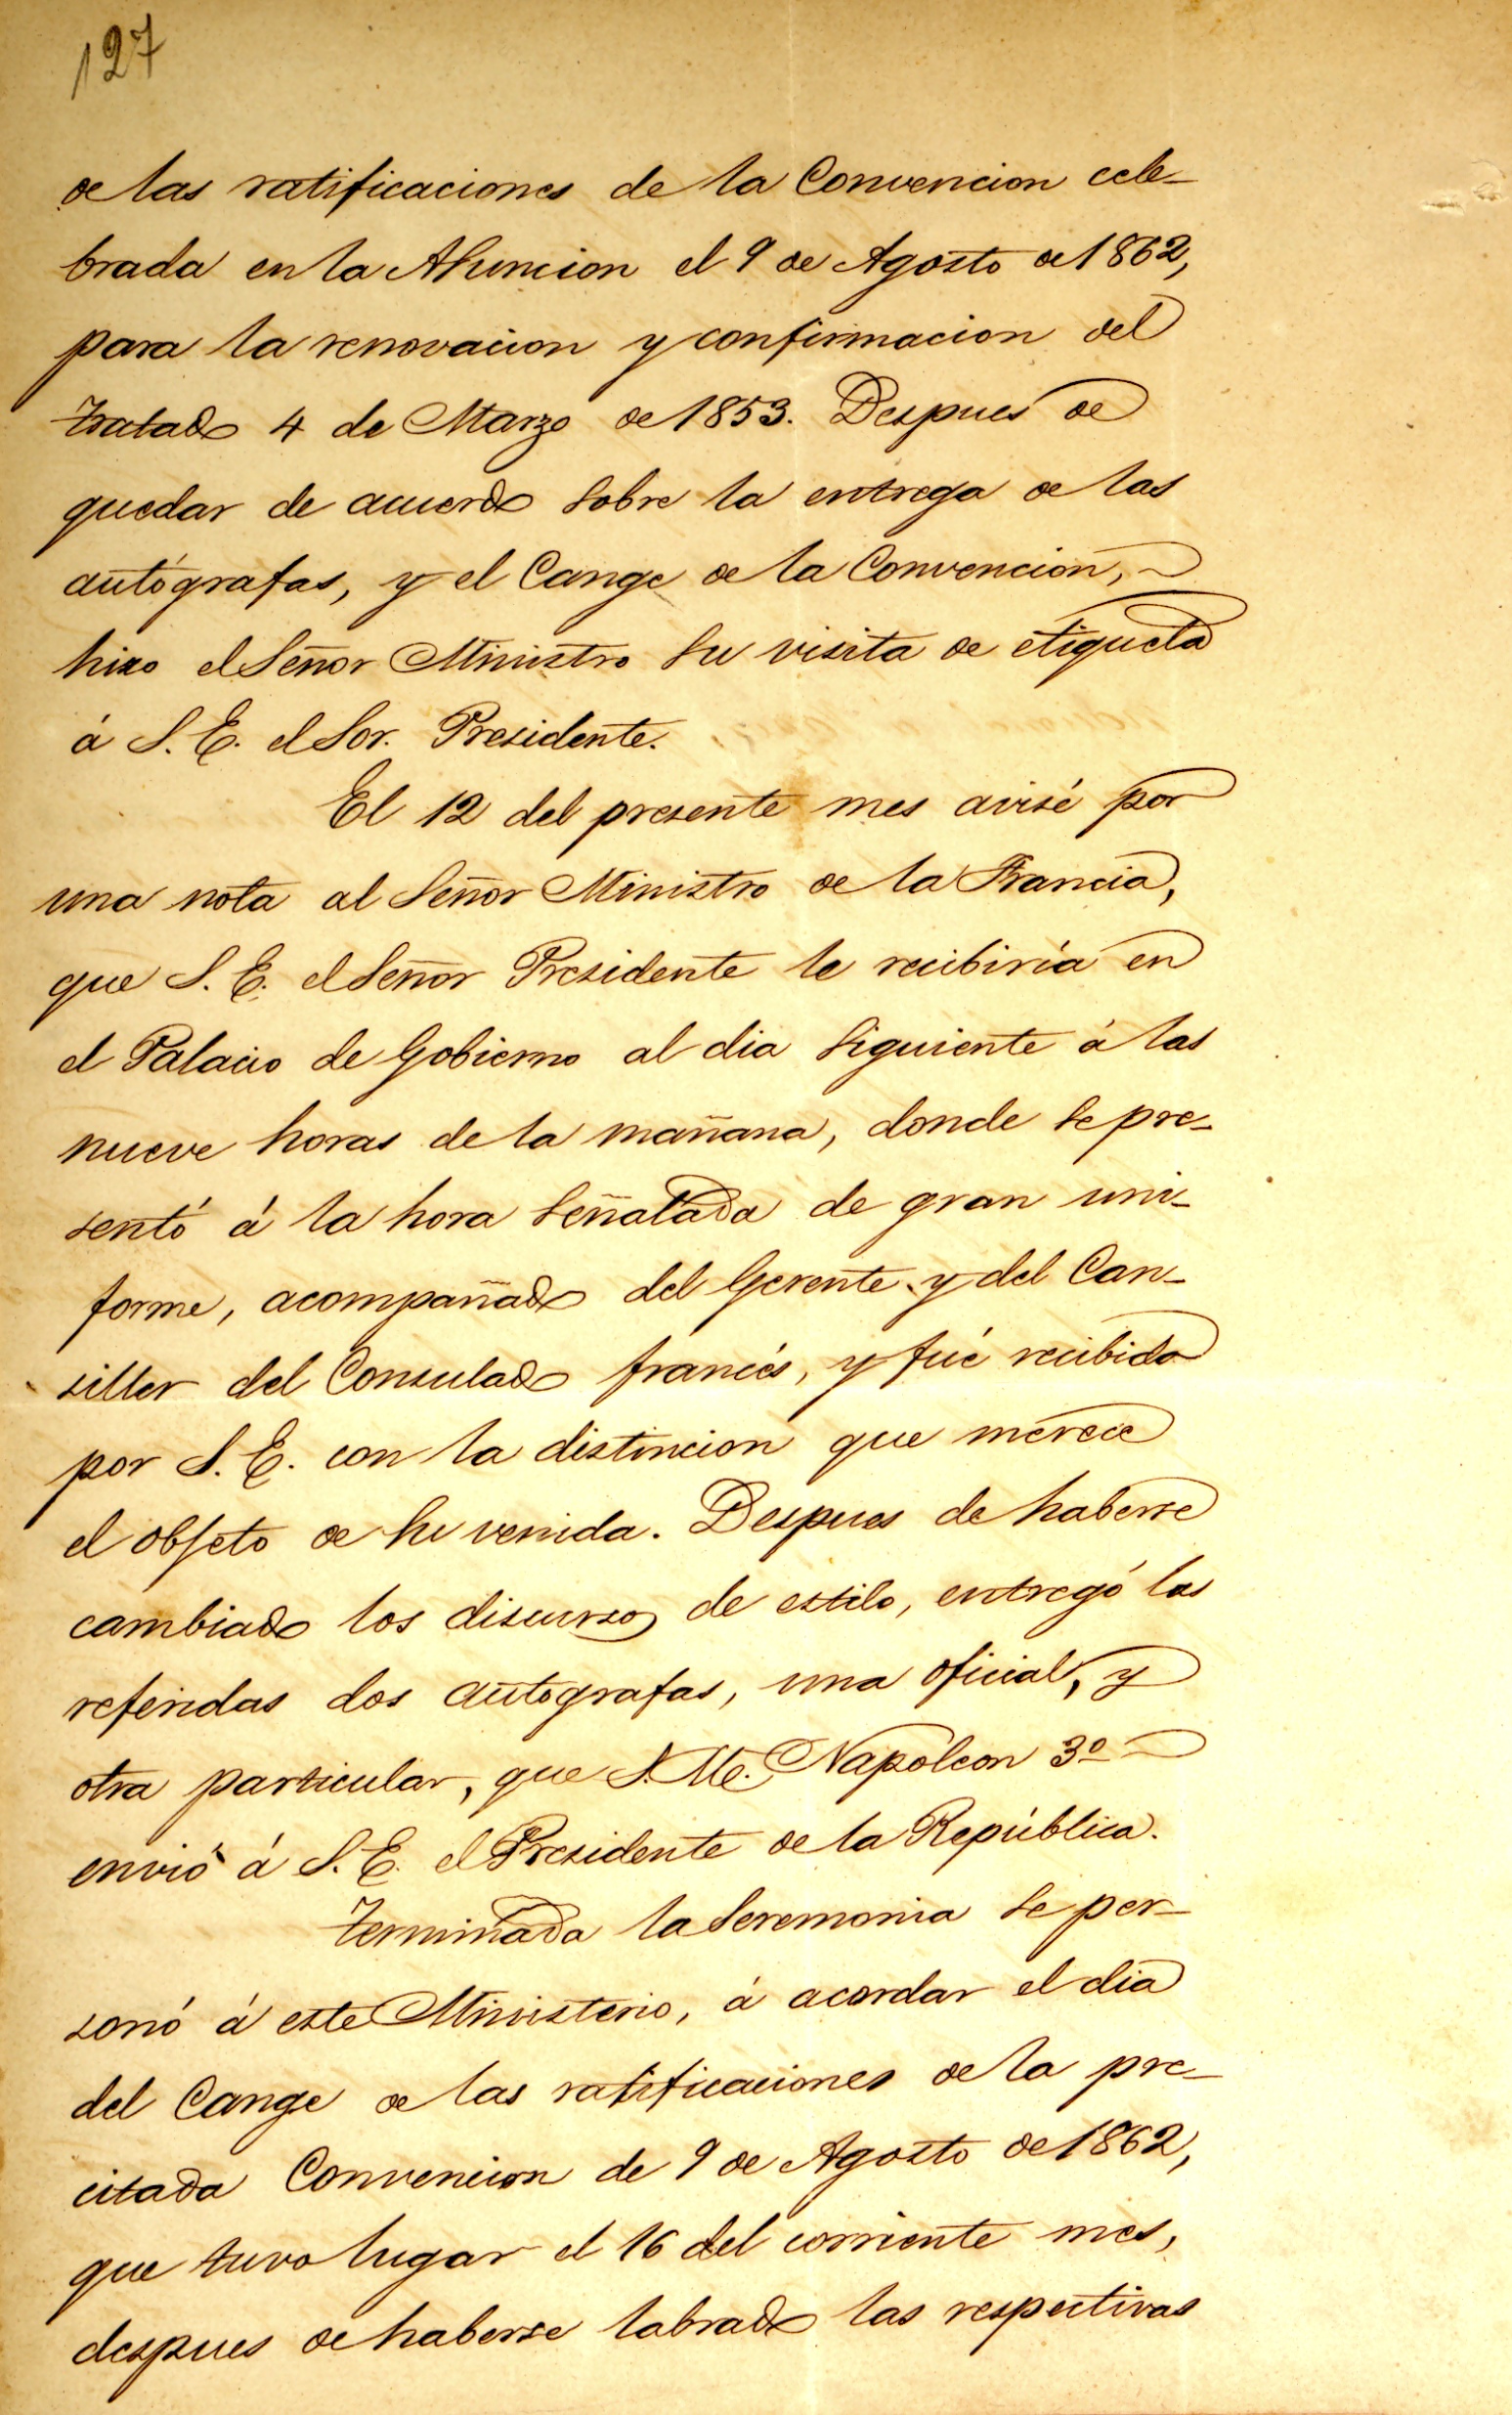 127
de las ratificaciones de la Convencion cele-
brada en la Asuncion el 9 de Agosto de 1862,
para la renovacion y confirmacion del
tratado 4 de Marzo de 1853. Despues de
quedar de acuerdo sobre la entrega de las
autógrafas, y el Cange de la Convencion,
hizo el Señor Ministro su visita de etiqueta
á S. E. el Sor. Presidente.
El 12 del presente mes avisé por
una nota al Señor Ministro de la Francia,
que S. E. el Señor Presidente le recibiría en
el Palacio de Gobierno al dia siguiente á las
nueve horas de la mañana, donde se pre-
sentó á la hora señalada de gran uni-
forme, acompañado del Gerente y del Can-
siller del Consulado francés, y fué recibido
por S. E. con la distincion que merece
el objeto de su venida. Despues de haberse
cambiado los discursos de estilo, entregó las
referidas dos autografas, una oficial, y
otra particular, que S. M. Napoleon 3º
envió á S. E. el Presidente de la República.
Terminada la Seremonia se per-
sonó á este Ministerio, á acordar el dia
del Cange de las ratificaciones de la pre-
citada Convencion de 9 de Agosto de 1862,
que tuvo lugar el 16 del corriente mes,
despues de haberse labrado las respectivas